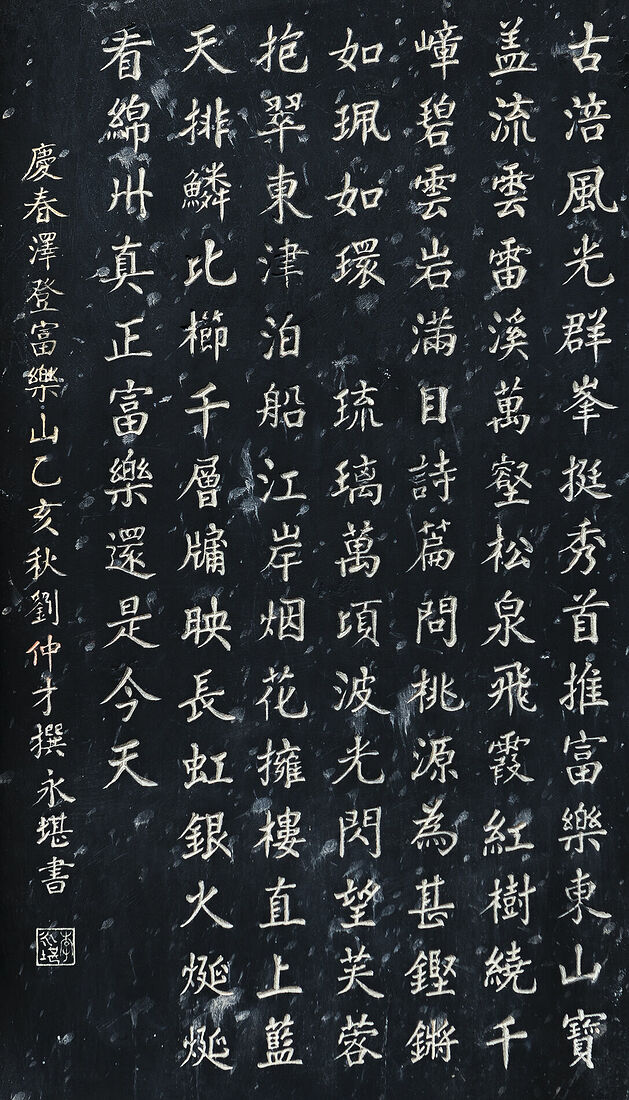 古涪風光群峯挺秀首推富樂東山寶
盖流雲雷溪萬壑松泉飛霞紅樹繞千
嶂碧雲岩滿目詩篇問桃源為甚鏗鏘
如珮如環 琉璃萬頃波光閃望芙蓉
抱翠東津泊船江岸烟花擁樓直上藍
天排鱗比櫛千層牗映長虹銀火烻烻
看綿州真正富樂還是今天
慶春澤登富樂山乙亥秋劉仲才撰永堪書